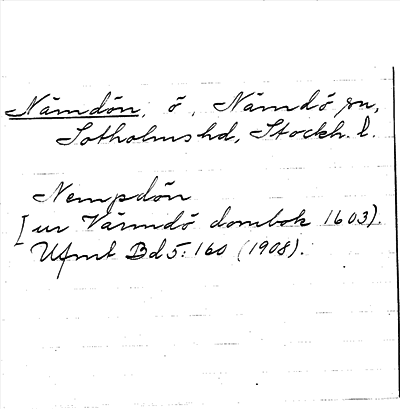 Nämdön, ö, Nämdö sn,
Sotholms hd, Stockh. l.
Nempdön
[ur Värmdö dombok 1603).
Ufmt Bd 5: 160 (1908).